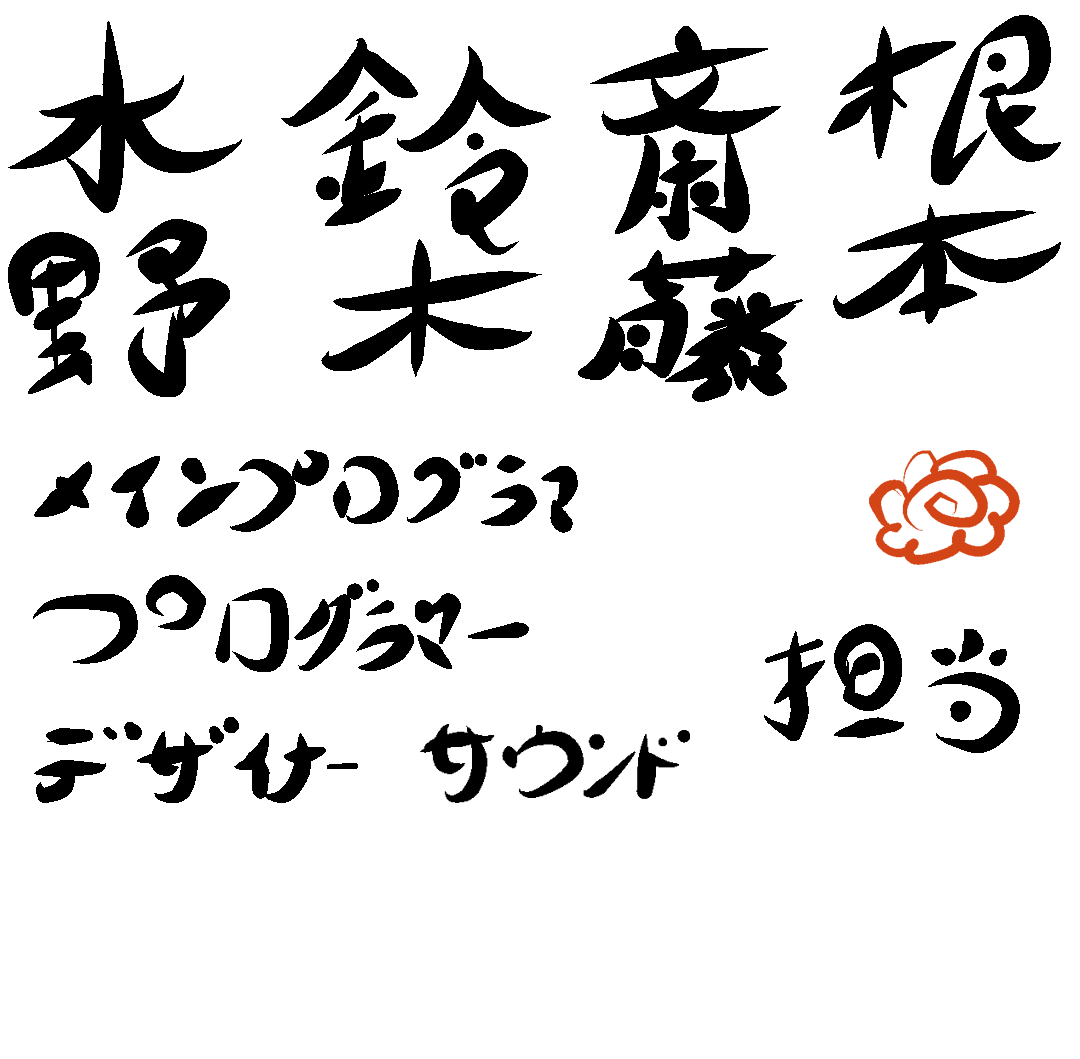 水野
鈴木
斎藤
根本
メインプログラマ
プログラマー
デザイナー
サウンド
担当